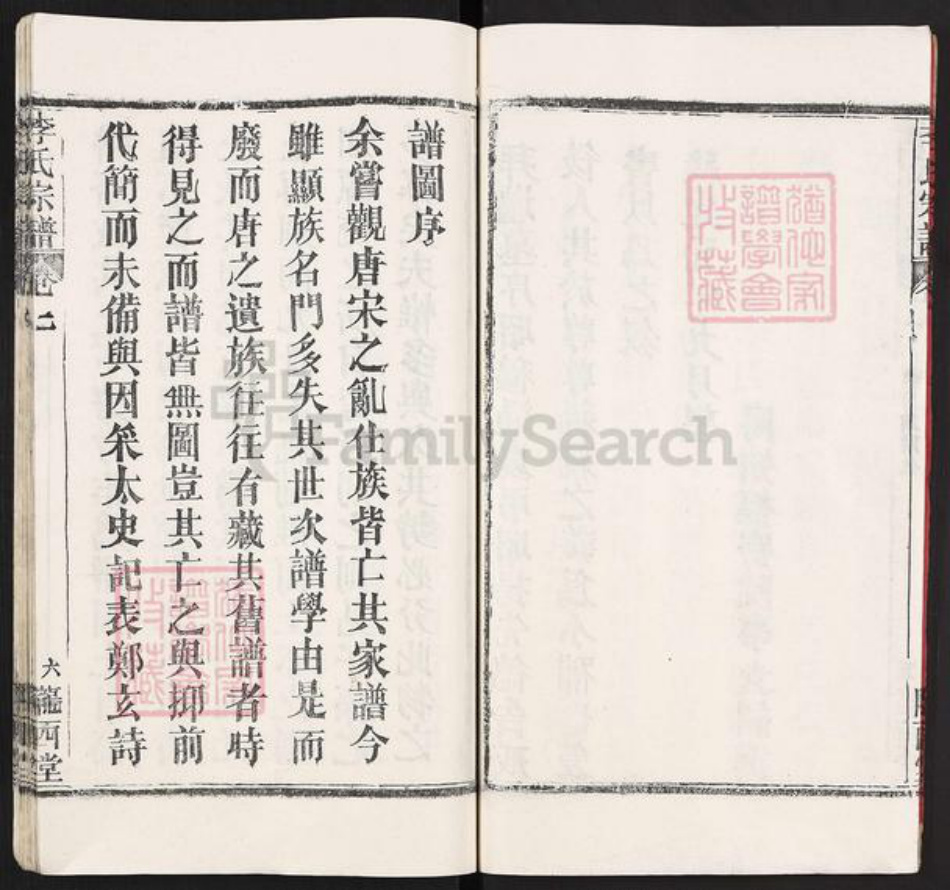 譜圖序
余嘗觀唐宋之亂仕族皆亡其家譜今
雖顯族名門多失其世次譜學由是而
廢而唐之遺族往往有藏其舊譜者時
得見之而譜皆無圖豈其亡之與抑前
代簡而未備與因采太史記表鄭玄詩
李氏宗譜
卷二
六
隴西堂
FamilySearch